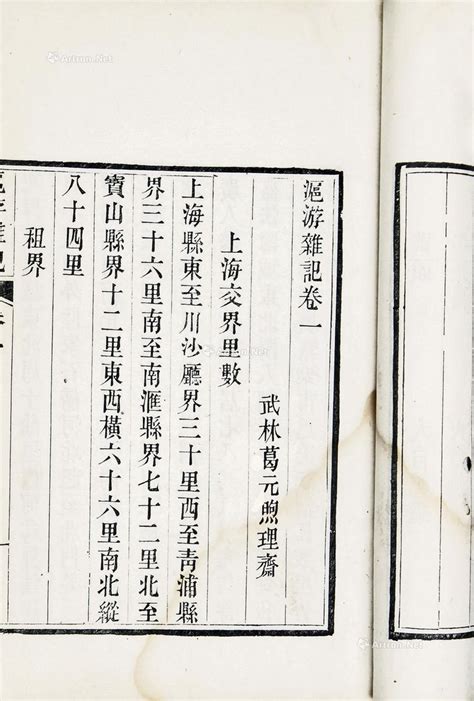 滬游雜記卷一
武林葛元煦理齋
上海交界里數
上海縣東至川沙廳界三十里西至青浦縣
界三十六里南至南滙縣界七十二里北至
寶山縣界十二里東西橫六十六里南北縱
八十四里
租界
Artron.Net